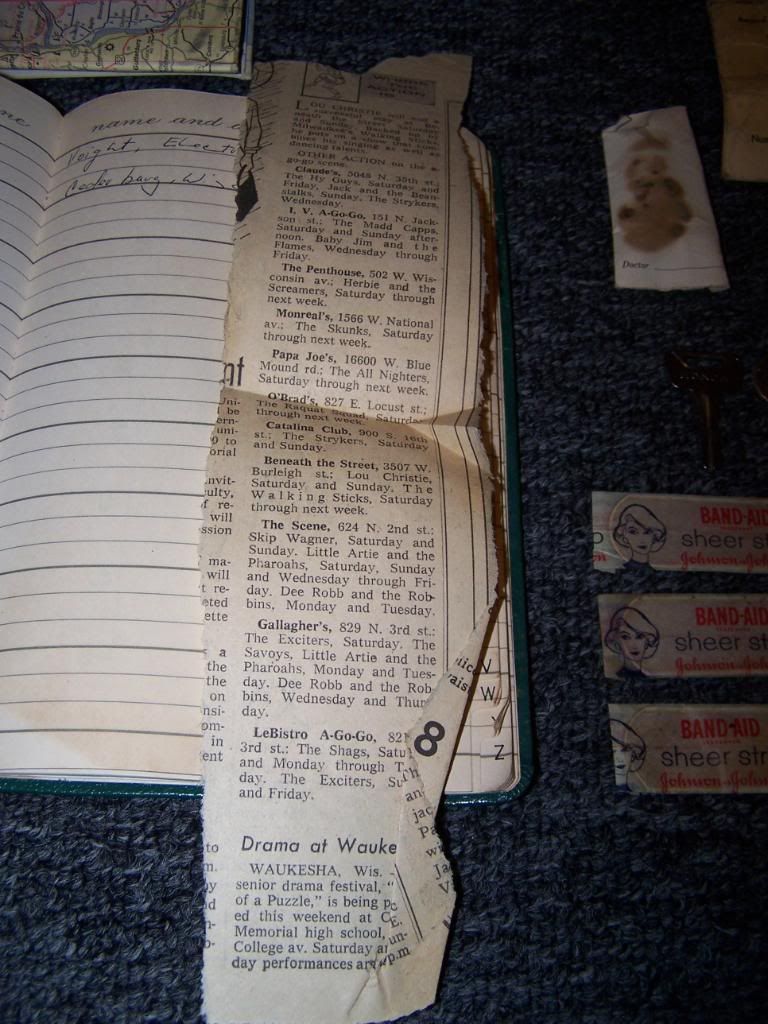 name and
Voight,
WHERE
THE
ACTION
IS
LOU CHRISTIE will
successful
neath the Street Saturday
and Sunday. Backed by
Milwaukee's Walking Sticks,
he puts on a show that com-
bines his singing as well as
dancing talents.
OTHER ACTION on the a
go-go scene.
Claude's, 5048 N. 35th st.:
The Hy Guys, Saturday and
Friday, Jack and the Bean-
stalks, Sunday. The Strykers,
Wednesday.
I. V. A-Go-Go, 151 N. Jack-
son st.: The Madd Capps,
Saturday and Sunday after-
noon. Baby Jim and the
Flames, Wednesday through
Friday.
The Penthouse, 502 W. Wis-
consin av.; Herbie and the
Screamers, Saturday through
next week.
Monreal's, 1566 W. National
av.: The Skunks, Saturday
through next week.
Papa Joe's, 16600 W. Blue
Mound rd.; The All Nighters,
Saturday through next week.
O'Brad's, 827 E. Locust st.;
The Raquat Squad, Saturday
through next week.
Catalina Club, 900 S. 16th
st.: The Strykers, Saturday
and Sunday.
Beneath the Street, 3507 W.
Burleigh st.; Lou Christie,
Saturday and Sunday. The
Walking Sticks, Saturday
through next week.
The Scene, 624 N. 2nd st.:
Skip Wagner, Saturday and
Sunday. Little Artie and the
Pharoahs, Saturday, Sunday
and Wednesday through Fri-
day. Dee Robb and the Rob-
bins, Monday and Tuesday.
Gallagher's, 829 N. 3rd st.:
The Exciters, Saturday. The
Savoys, Little Artie and the
Pharoahs, Monday and Tues-
day. Dee Robb and the Rob-
bins, Wednesday and Thur
day.
LeBistro A-Go-Go, 821
3rd st.: The Shags, Satu
and Monday through T
day. The Exciters, Su
and Friday.
Drama at Wauke
WAUKESHA, Wis. -
senior drama festival, "
of a Puzzle," is being p
ed this weekend at C
Memorial high school,
College av. Saturday a
day performances are
p.m
nt
Uni-
be
ern-
uni-
to
orial
nvit-
ulty,
f re-
will
ssion
ma-
will
t re-
eted
ette
s a
the
the
on
nsi-
om-
in
ent
to
m.
8
V
W
Y
Z
Doctor
BAND-AID
sheer st
Johnson & Johnson
BAND-AID
sheer st
Johnson & Johnson
BAND-AID
sheer str
Johnson & Johnson